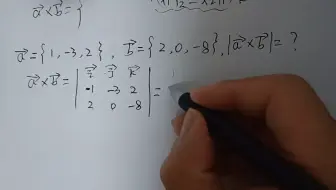 a⃗×b⃗={
a⃗={1,-3,2}, b⃗={2,0,-8}, |a⃗×b⃗|= ?
a⃗×b⃗= | i⃗ j⃗ k⃗ | =
-1 -3 2
2 0 -8